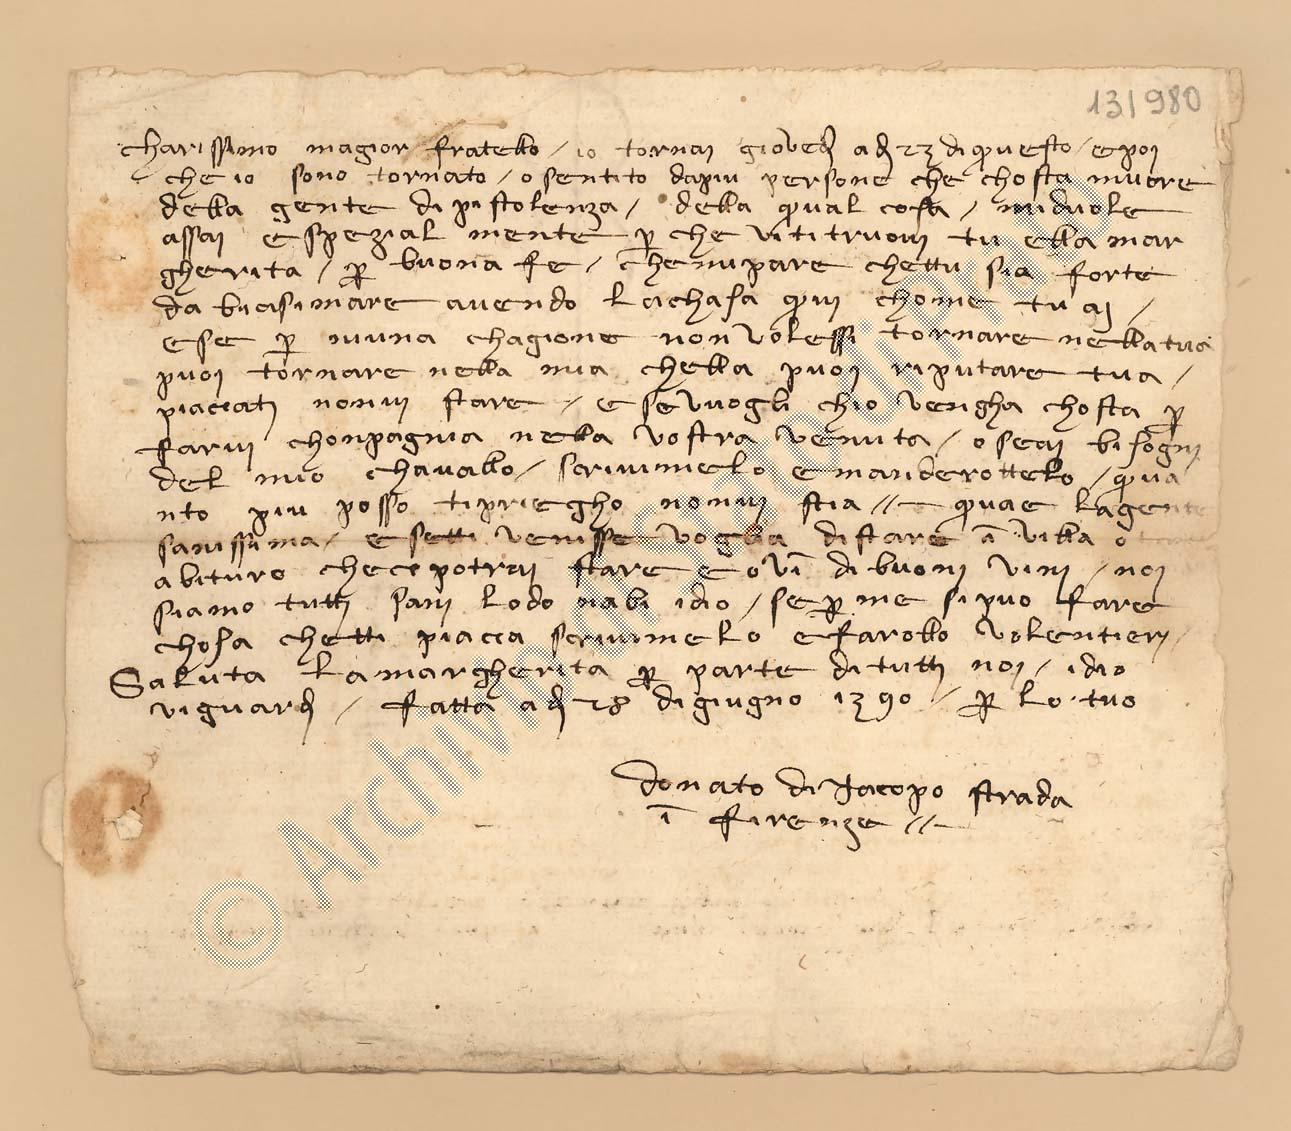 131980
charissimo magior fratello / io tornai giovedì a dì 23 di questo / e poi
che io sono tornato / o sentito da piu persone che chosta muore
della gente di pistolenza / della qual cosa / mi duole
assai e spezial mente p che vi ti truovi tu ella mar
gherita / p buona fe / che mi pare chettu sia forte
da biasimare avendo la chasa qui chome tu ai /
e se p niuna chagione non volessi tornare nella tua
puoi tornare nella mia chella puoi riputare tua /
piacciati nonvi stare / e se vuogli chio vengha chosta p
farvi chonpagnia nella vostra venuta / o seai bisogni
del mio chavallo / scrivimelo e manderottelo / qua
nto piu posso ti priegho nonvi stia // quae la gente
sanissima / e setti venisse voglia di stare i villa o
abituro che ce potrai stare e ovi di buoni vini / noi
siamo tutti sani lodo nabi idio / se p me si puo fare
chosa chetti piaccia scrivimelo e farollo volentieri /
Saluta la margherita p parte di tutti noi / idio
vi guardi / fatta a dì 28 di giugno 1390 / p lo tuo
donato di Jacopo strada
i firenze //
© Archivio di Stato di Prato